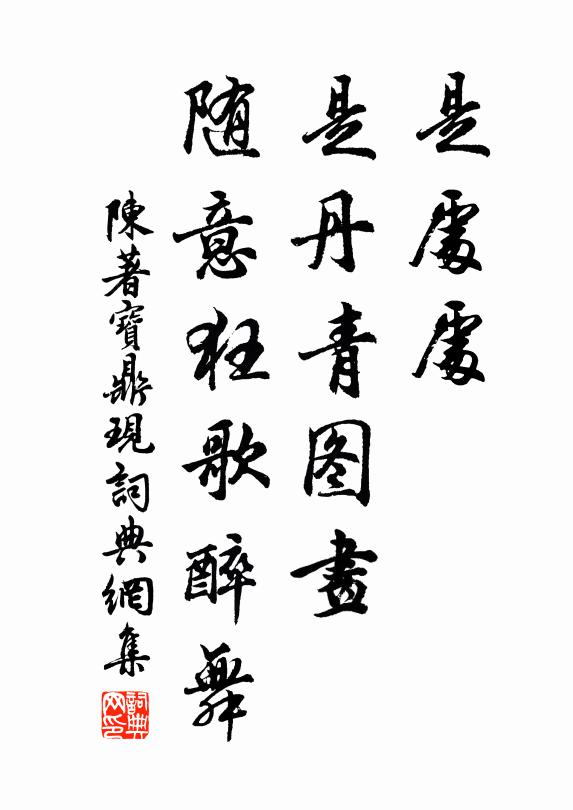 是處處
是丹青图畫
随意狂歌醉舞
陳著寶鼎現詞典網集
詞典網印